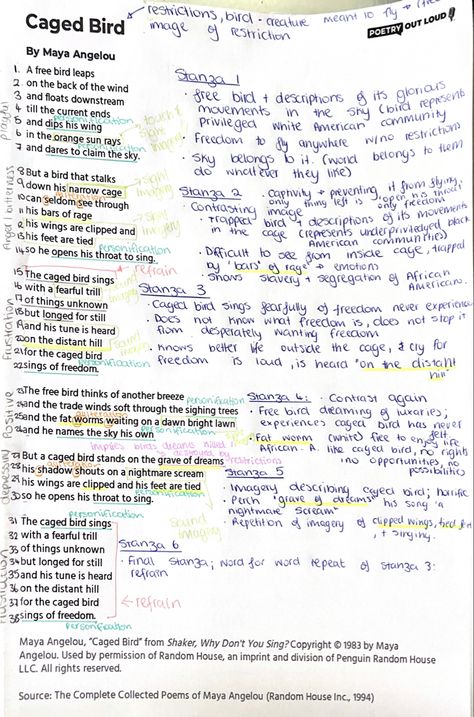 Caged Bird
restrictions, bird - creature meant to fly
image of restriction
POETRY OUT LOUD
By Maya Angelou
1. A free bird leaps
2 on the back of the wind
3 and floats downstream
4 till the current ends
personification
5 and dips his wing
6 in the orange sun rays
personification
7 and dares to claim the sky.
playful
Stanza 1
• free bird + descriptions of its glorious
movements in the sky (bird represents
privileged white American community)
• Freedom to fly anywhere w/no restrictions
• Sky belongs to it. (world belongs to them
do whatever they like)
8 But a bird that stalks
9 down his narrow cage
10 can seldom see through
11 his bars of rage
12 his wings are clipped and
13 his feet are tied
personification
14 so he opens his throat to sing.
Anger / bitterness
sight imagery
Stanza 2
• captivity + preventing it from flying,
only thing left is to open his throat
• Contrasting image of freedom
• trapped bird + descriptions of its movements
in the cage (represents underprivileged black
American communities)
• Difficult to see from inside cage, trapped
by "bars of rage" → emotions
• shows slavery + segregation of African
Americans.
refrain
15 The caged bird sings
16 with a fearful trill
17 of things unknown
18 but longed for still
19 and his tune is heard
20 on the distant hill
21 for the caged bird
22 sings of freedom.
Frustration
sound imagery
Stanza 3
• Caged bird sings fearfully of freedom never experienced
• Does not know what freedom is, does not stop it
from desperately wanting freedom
• Knows better life outside the cage, & cry for
freedom is loud, is heard "on the distant
hill"
23 The free bird thinks of another breeze
personification
24 and the trade winds soft through the sighing trees
alliteration
25 and the fat worms waiting on a dawn bright lawn
26 and he names the sky his own
personification
Positive
Stanza 4:
• Contrast again
• Free bird dreaming of luxuries;
experiences caged bird has never
felt.
• Fat worm (white) free to enjoy life
African. A. like caged bird, no rights
no opportunities, no
possibilities
implies birds dreams killed
+ destroyed by
restrictions
27 But a caged bird stands on the grave of dreams
28 his shadow shouts on a nightmare scream
29 his wings are clipped and his feet are tied
personification
30 so he opens his throat to sing.
depressing
Stanza 5
• Imagery describing caged bird; horrific
• Perch "grave of dreams" his song "a
nightmare scream"
• Repetition of imagery of clipped wings, tied feet
+ singing.
personification
sound imagery
31 The caged bird sings
32 with a fearful trill
33 of things unknown
34 but longed for still
35 and his tune is heard
36 on the distant hill
37 for the caged bird
38 sings of freedom.
personification
← refrain
Frustration
Stanza 6
• Final Stanza; word for word repeat of stanza 3:
refrain
Maya Angelou, "Caged Bird" from Shaker, Why Don't You Sing? Copyright © 1983 by Maya
Angelou. Used by permission of Random House, an imprint and division of Penguin Random House
LLC. All rights reserved.
Source: The Complete Collected Poems of Maya Angelou (Random House Inc., 1994)